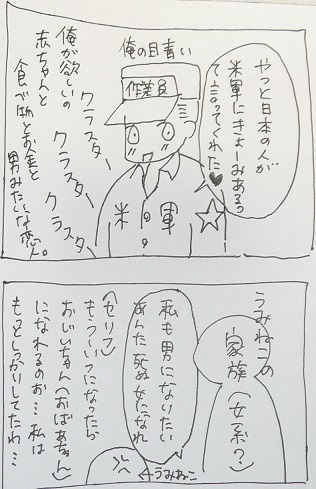 俺の目青い
やっと日本の人が
米軍にきょーみあるっ
て言ってくれた♥
作業員
米軍
クラスター
クラスター
クラスター
俺が欲しいの
赤ちゃんと
食べ物とお金と
男みたいな恋人。
うみねこの
家族(女系?)
私も男になりたい
あんた死ぬ女になれ
(セリフ)
もういつになったら
おじいちゃん(おばあちゃん)
になれるのお…私は
もっとしっかりしてたわ…
←うみねこ